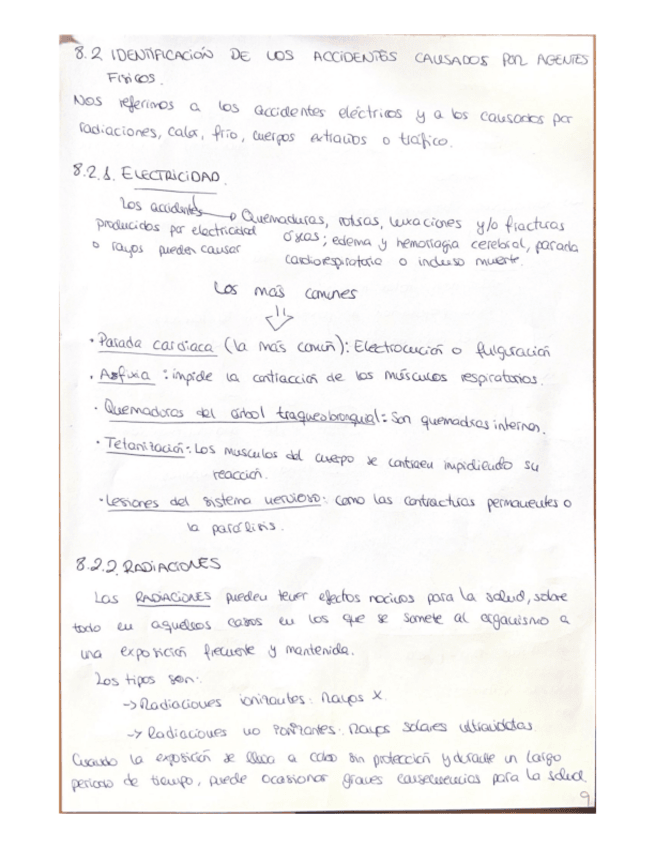 8.2 IDENTIFICACIÓN DE LOS ACCIDENTES CAUSADOS POR AGENTES
FÍSICOS.
Nos referimos a los accidentes eléctricos y a los causados por
radiaciones, calor, frío, cuerpos extraños o tráfico.
8.2.1. ELECTRICIDAD.
Los accidentes → Quemaduras, roturas, luxaciones y/o fracturas
producidos por electricidad óseas; edema y hemorragia cerebral, parada
o rayos pueden causar cardiorespiratoria o incluso muerte.
Los más comunes
⇓
• Parada cardiaca (la más común): Electrocución o fulguración
• Asfixia: impide la contracción de los músculos respiratorios.
• Quemaduras del árbol traqueobronquial: Son quemaduras internas.
• Tetanización: Los musculos del cuerpo se contraen impidiendo su
reacción.
• Lesiones del sistema nervioso: como las contracturas permanentes o
la parálisis.
8.2.2. RADIACIONES
Las RADIACIONES pueden tener efectos nocivos para la salud, sobre
todo en aquellos casos en los que se somete al organismo a
una exposición frecuente y mantenida.
Los tipos son:
-> Radiaciones ionizantes: Rayos X.
-> Radiaciones no ionizantes: Rayos solares ultravioletas
Cuando la exposición se lleva a cabo sin protección y durante un largo
periodo de tiempo, puede ocasionar graves consecuencias para la salud
9